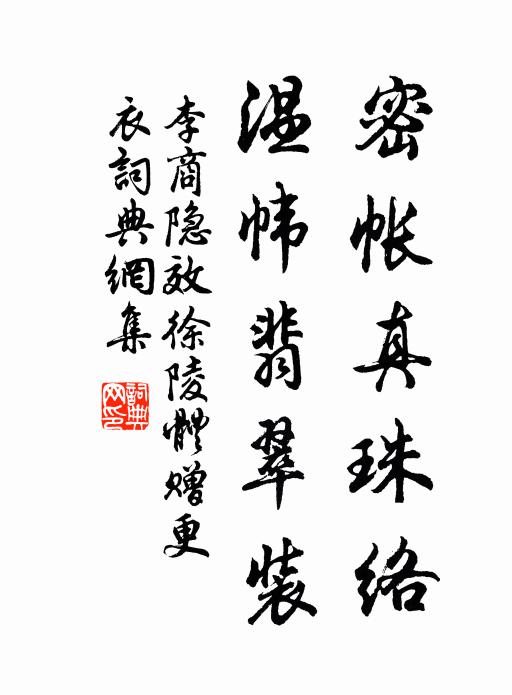 密帐真珠络
温帏翡翠装
李商隐效徐陵體赠更
衣詞典網集
詞典网印